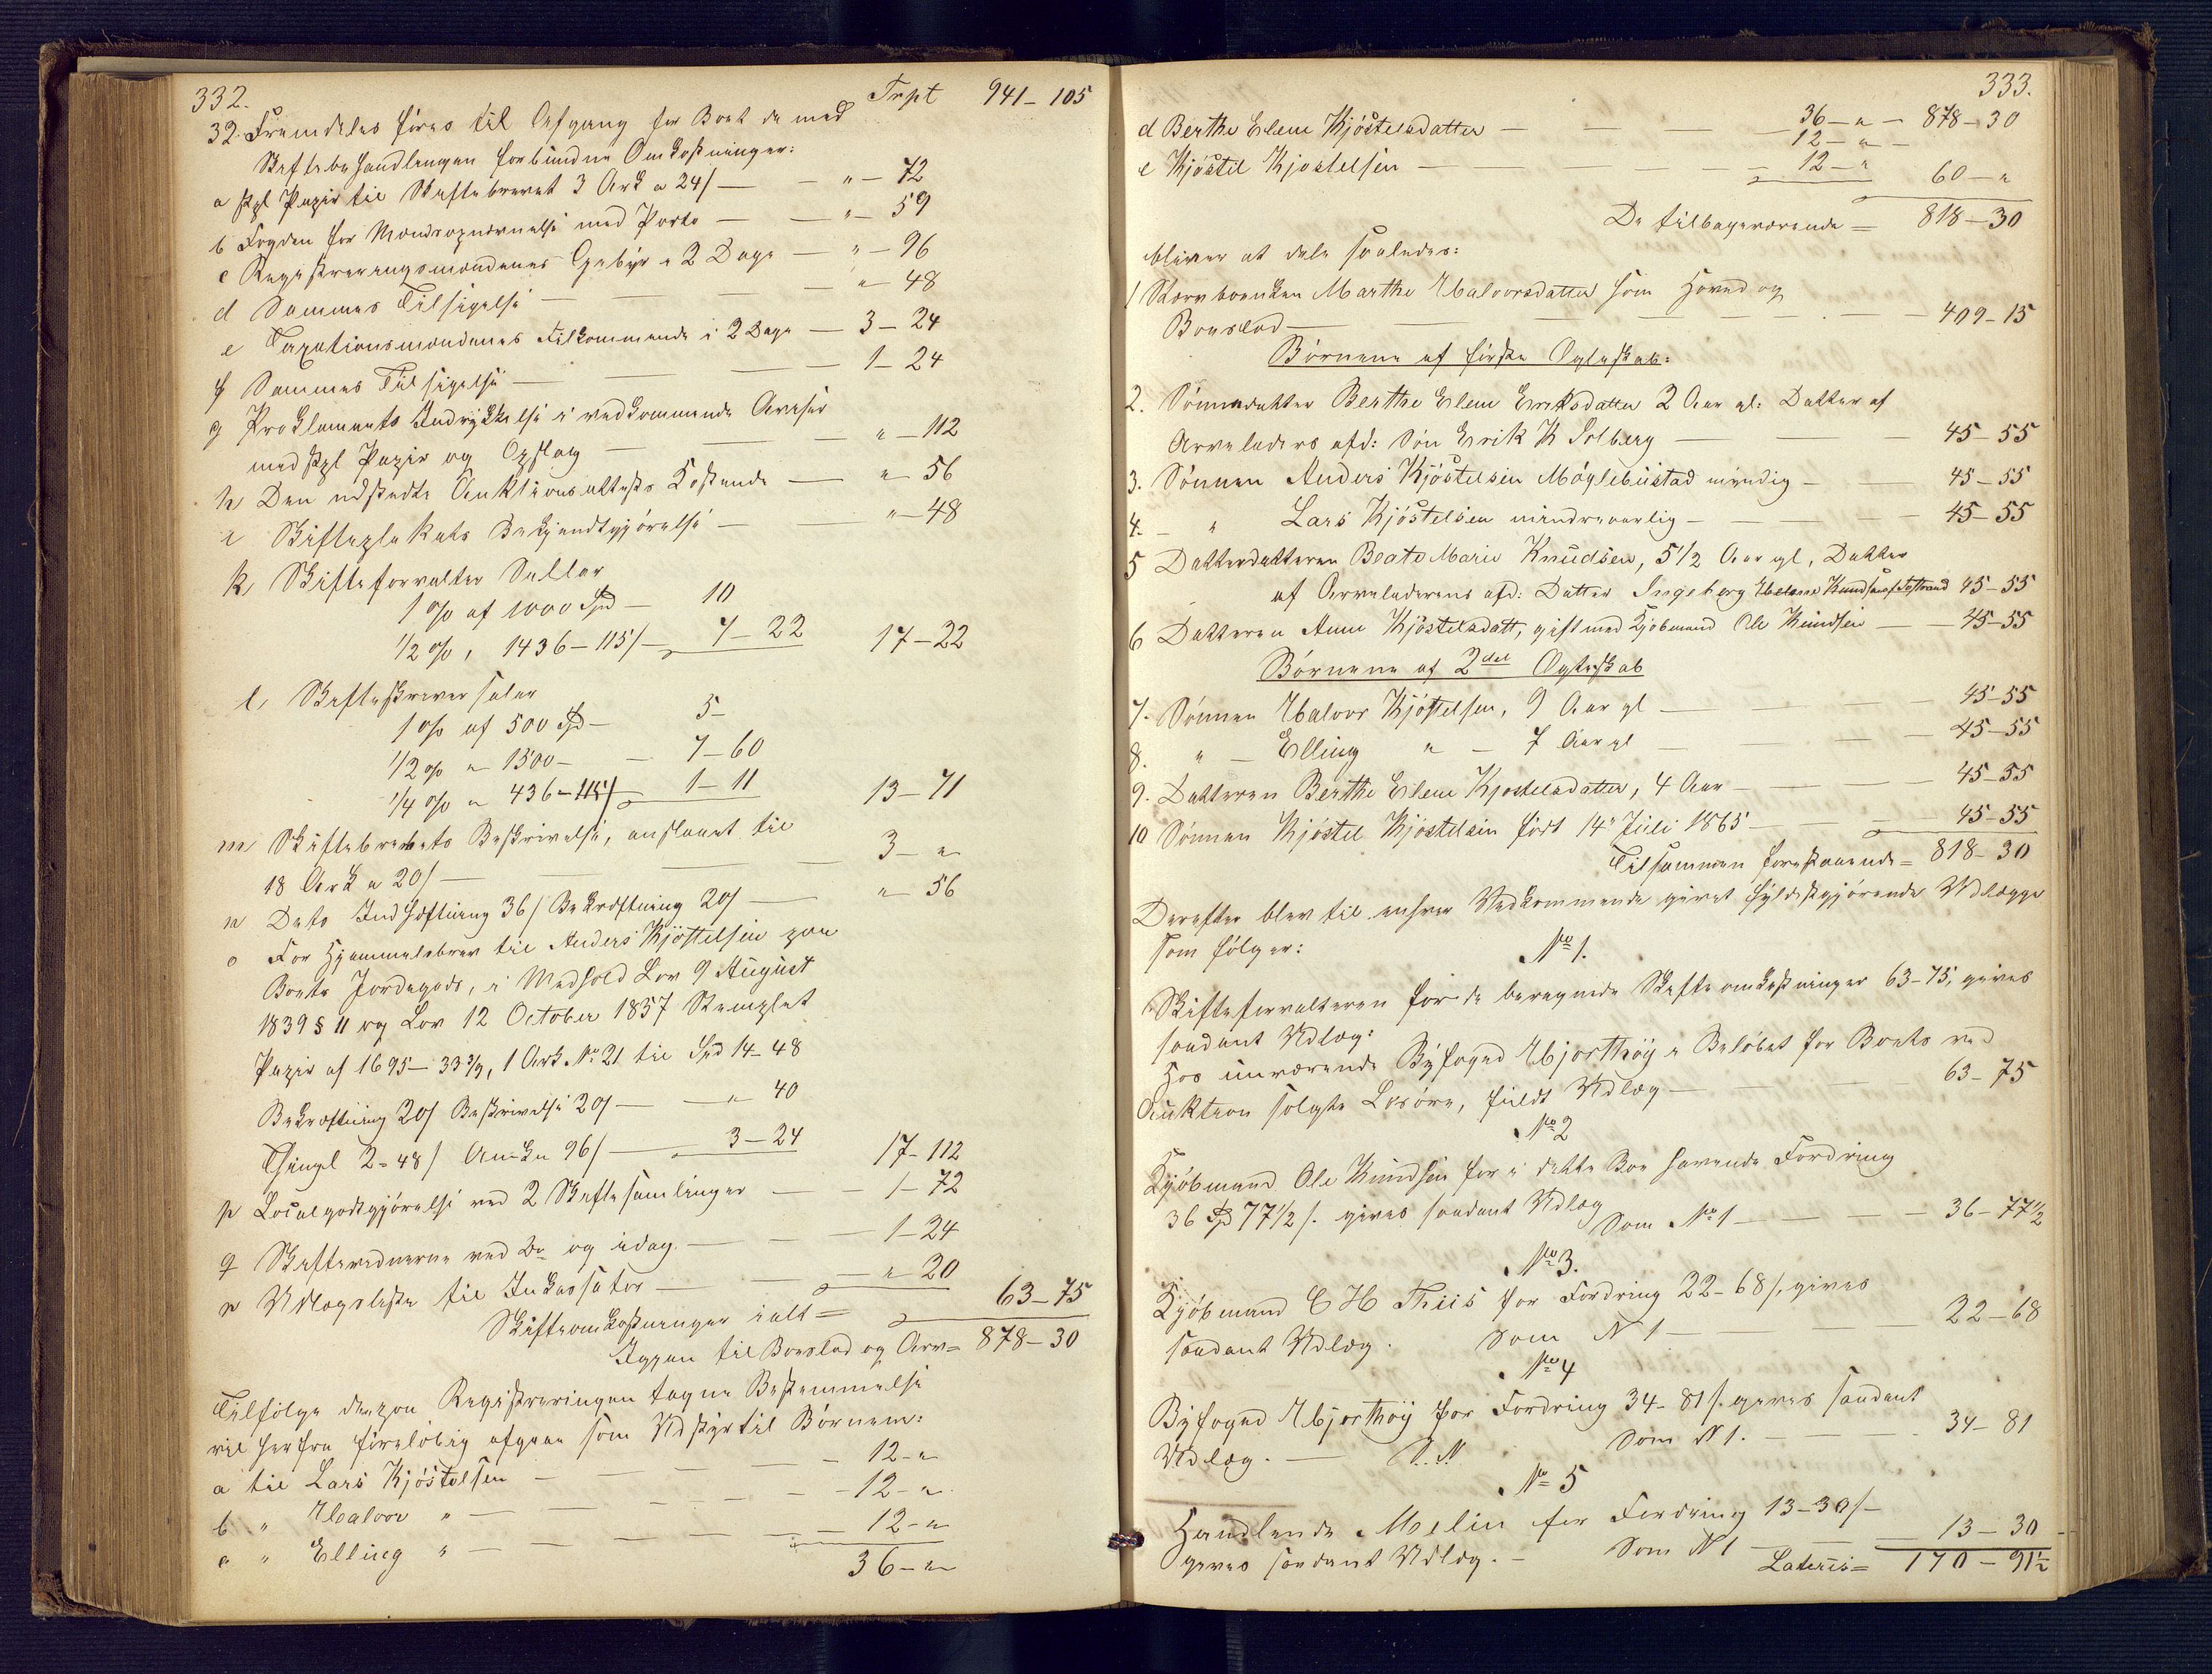 332.
Trpt 941-105
32. Fremdeles føres til Afgang for Boet de med
Skiftebehandlingen forbundne Omkostninger:
a stpl Papir til Skiftebrevet 3 Ark a 24/ — " - 72
b Fogden for Mændsopnævnelse med Porto — " - 59
c Registreringsmændenes Gebyr i 2 Dage — " - 96
d Sammes Tilsigelse — " 48
e Taxationsmændenes Tilkommende i 2 Dage — 3-24
f Sammes Tilsigelse — 1-24
g Proklamaets Indrykkelse i vedkommende Aviser
med stpl Papir og Opslag — " - 112
h Den udstedte Auktions attests Kostende — " 56
i Skifteplakats Bekjendtgjørelse — " - 48
k Skifteforvalter Sallar
1 % af 1000 Spd — 10
1/2 %, 1436-115/ — 7-22 17-22
l, Skifteskriver salar
1 % af 500 Spd — 5-
1/2 % " 1500 — 7-60
1/4 % " 436-115/ — 1-11 13-71
m Skiftebrevets Beskrivelse, anslaaet til
18 Ark a 20/ — 3-"
n Dets Indhæftning 36/ Bekræftning 20/ — " 56
o For Hjemmelsbrev til Anders Kjøstelsen paa
Boets Jordegods, i Medhold Lov 9 August
1839 § 11 og Lov 12 October 1857 Stemplet
Papir af 1695-33 3/9, 1 Ark No 21 til Spd 14-48
Bekræftning 20/ Beskrivelse 20/ — " 40
Thingl 2-48/ Anke 96/ — 3-24 17-112
p Localgodtgjørelse ved 2 Skiftesamlinger — 1-72
q Skiftevidnerne ved Do og idag — 1-24
r Udlægsliste til Inkassator — " 20
Skifteomkostninger ialt = 63-75
Igjen til Boeslod og Arv = 878-30
Tilfølge den paa Registreringen tagne Bestemmelse
vil herfra foreløbig afgaae som Udstyr til Børnene:
a til Lars Kjøstelsen — 12-"
b " Halvor " — 12-"
c " Elling " — 12-"
36-"
333.
d Berthe Elene Kjøstelsdatter — 36-" - 878-30
12-" -
e Kjøstel Kjøstelsen — 12-" 60-"
De tilbageværende = 818-30
bliver at dele saaledes:
1 Stervboenken Marthe Halvorsdatter som Hoved og
Boeslod — 409-15
Børnene af første Ægteskab:
2. Sønnedatter Berthe Elene Eriksdatter 2 Aar gl: Datter af
Arveladers afd: Søn Erik K Solberg — 45-55
3. Sønnen Anders Kjøstelsen Møglebustad myndig — 45-55
4. - " Lars Kjøstelsen mindreaarlig — 45-55
5 Datterdatteren Beate Marie Knudsen, 5 1/2 Aar gl, Datter
af Arveladerens afd: Datter Ingeborg Helene 45-55
6 Datteren Anne Kjøstelsdatt, gift med Kjøbmand Ole Knudsen — 45-55
Børnene af 2det Ægteskab
7. Sønnen Halvor Kjøstelsen, 9 Aar gl — 45-55
8. " - Elling " - 7 Aar gl — 45-55
9. Datteren Berthe Elene Kjøstelsdatter, 4 Aar — 45-55
10 Sønnen Kjøstel Kjøstelsen født 14de Juli 1865 — 45-55
Tilsammen forestaaende = 818-30
Derefter blev til enhver Vedkommende givet fyldestgjørende Udlægge
som følger:
No 1.
Skifteforvalteren for de beregnede Skifteomkostninger 63-75, gives
saadant Udlæg:
Hos nuværende Byfoged Hjorthøy i Beløbet for Boets ved
Auktion solgte Løsøre, fuldt Udlæg — 63-75
No 2
Kjøbmand Ole Knudsen for i dette Boe havende Fordring
36 Spd 77 1/2 /. gives saadant Udlæg
Som No 1 — 36-77 1/2
No 3.
Kjøbmand C H Thiis for Fordring 22-68/, gives
saadant Udlæg. Som N 1 — 22-68
No 4
Byfoged Hjorthøy for Fordring 34-81/. gives saadant
Udlæg. — Som N 1. — 34-81
No 5
Handlende Melin for Fordring 13-30/ —
gives saadant Udlæg. — Som N 1 — 13-30
Lateris = 170-91 1/2